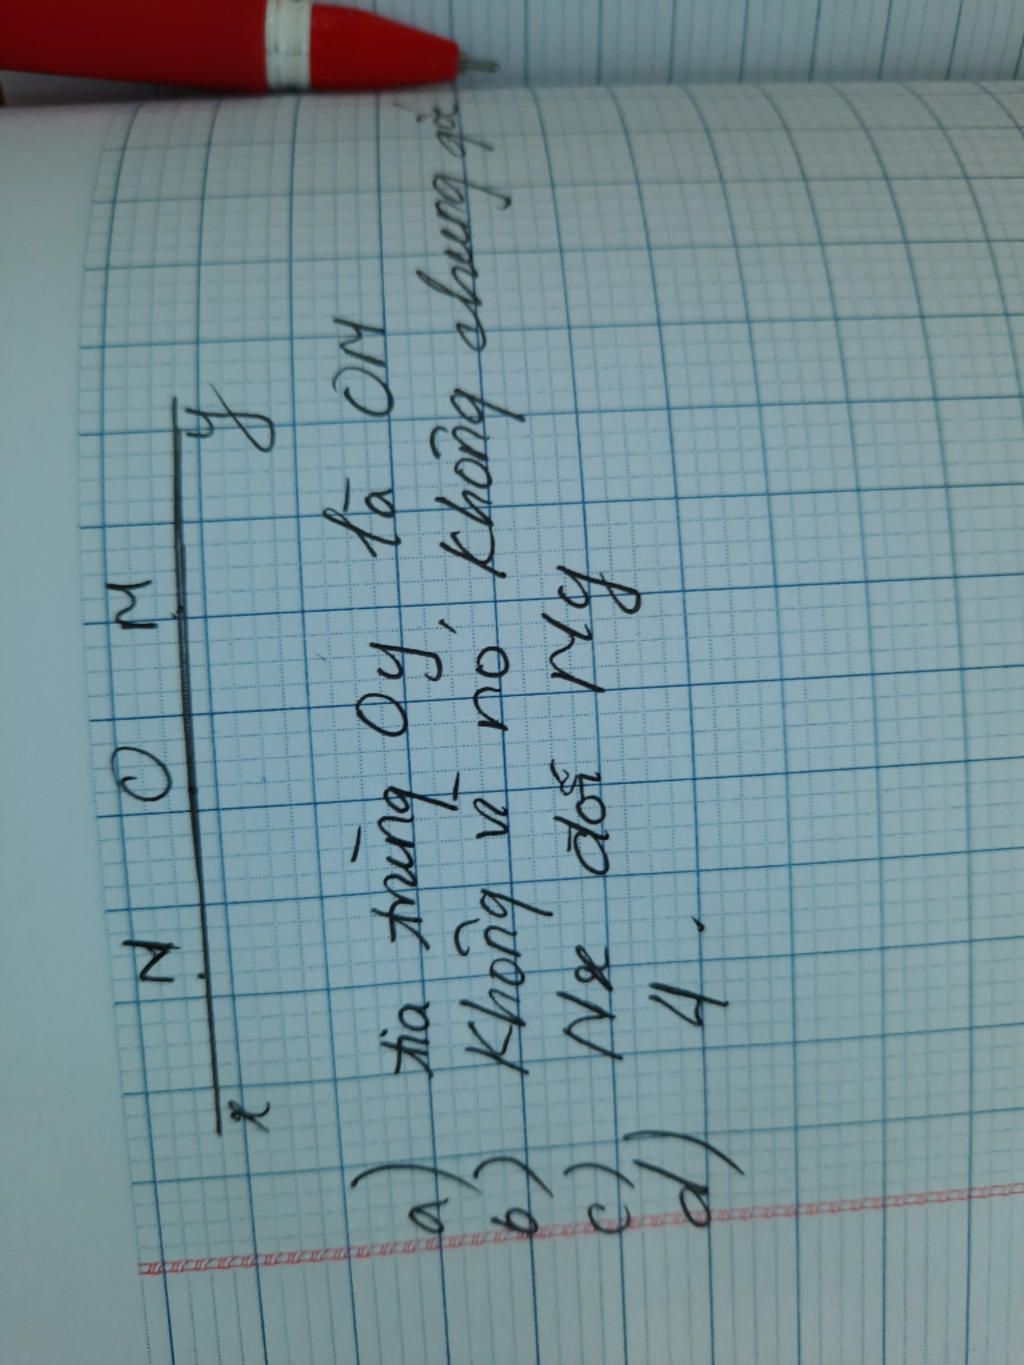 N O M
x y
a) tia trùng Oy là OM
b) Không vì nó không chung gốc
c) Nx đối My
d) 4.